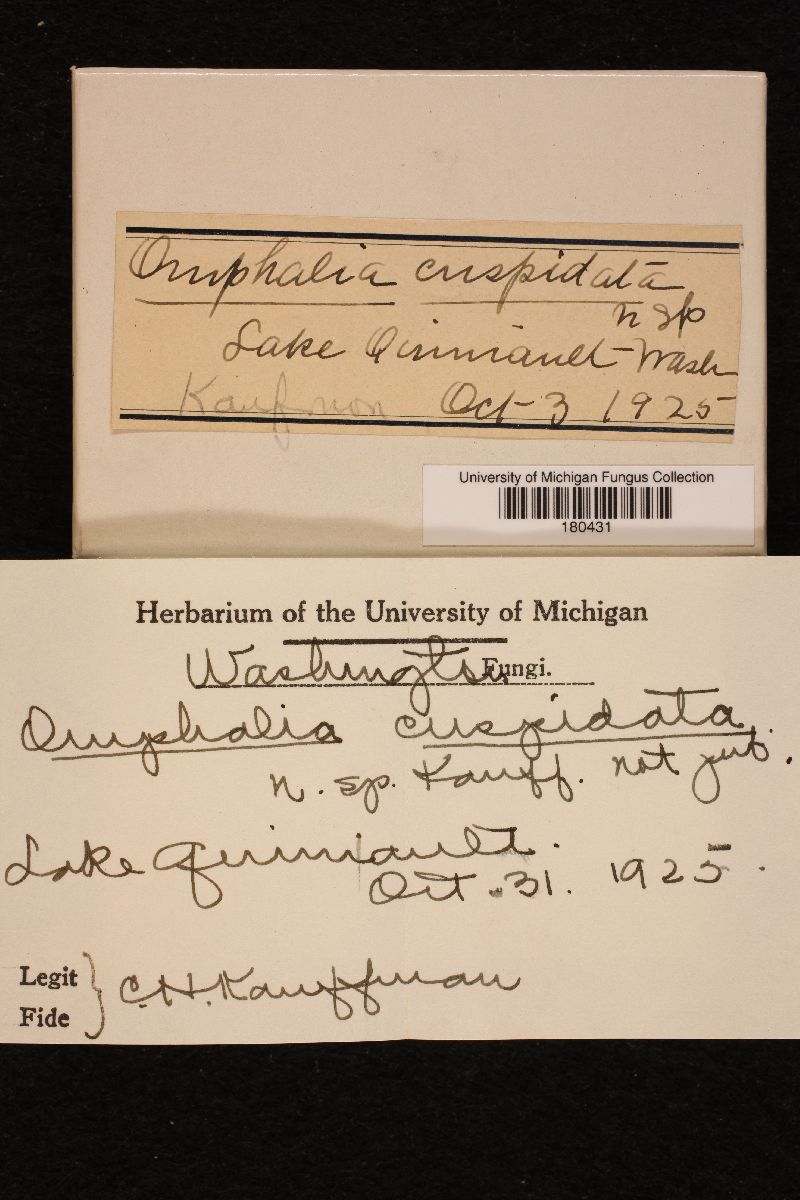 Omphalia cuspidata
n sp
Lake Quiniault - Wash
Kaufmon Oct 3 1925
University of Michigan Fungus Collection
180431
Herbarium of the University of Michigan
Washington Fungi.
Omphalia cuspidata.
n. sp. Kauff. not pub.
Lake Quiniault.
Oct. 31. 1925.
Legit
Fide } C.H. Kauffman